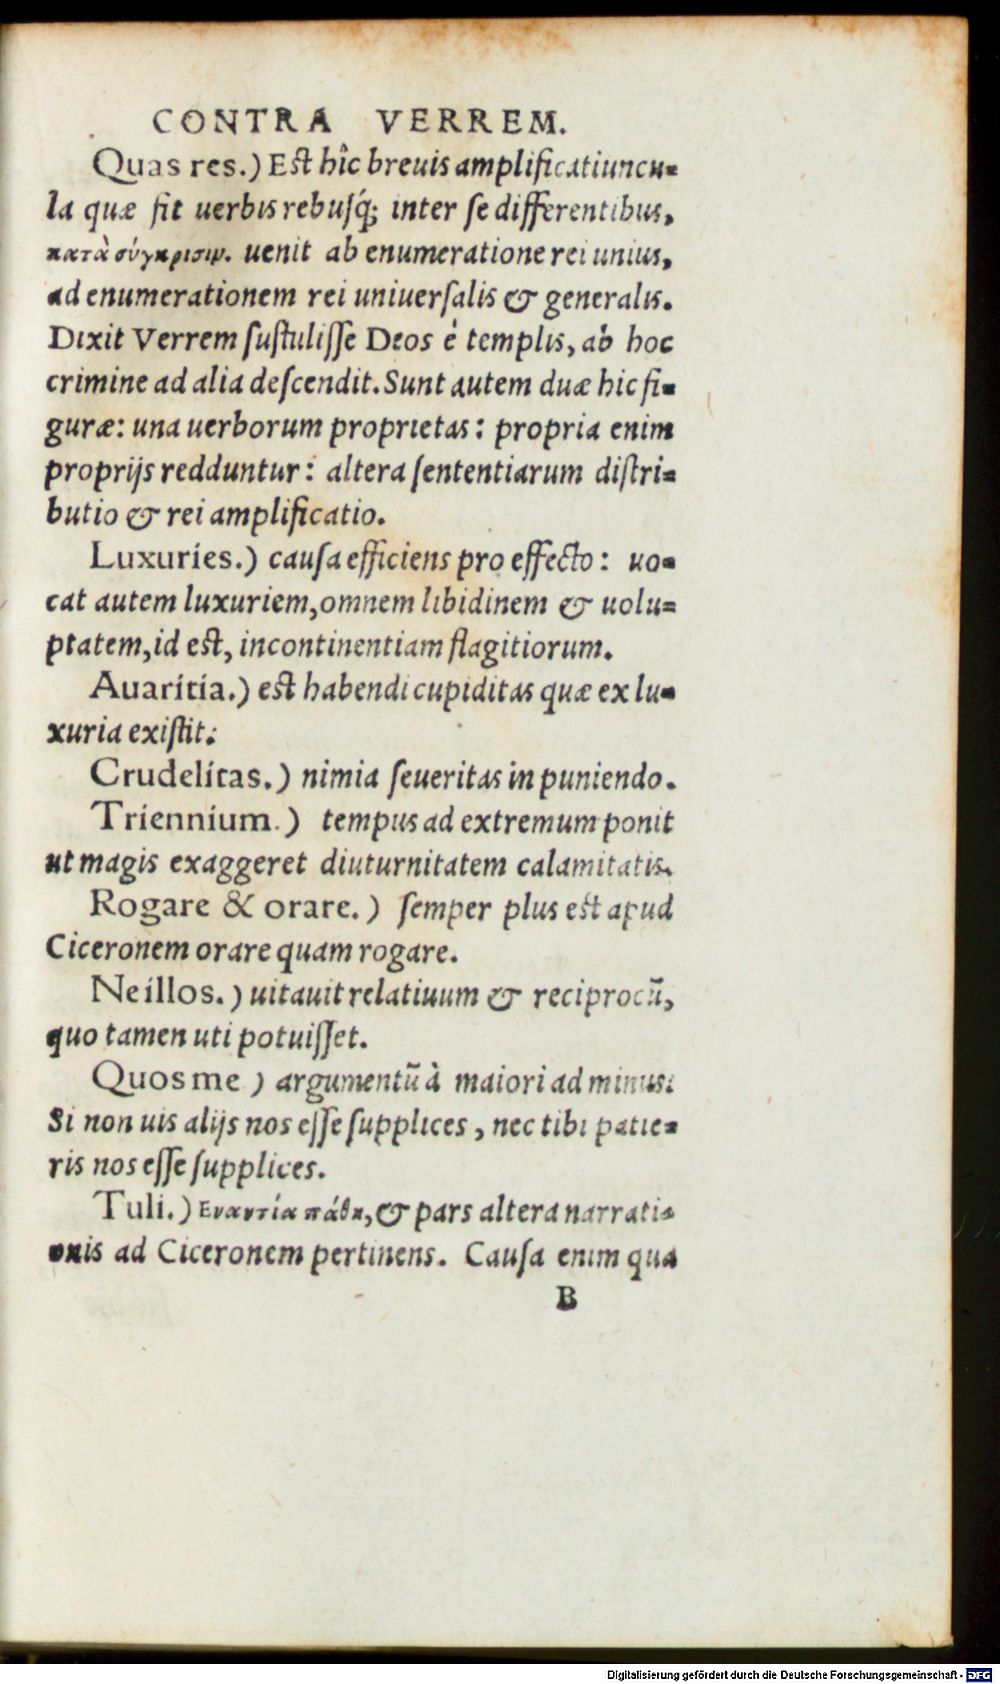 CONTRA VERREM.
Quas res.) Est hîc breuis amplificatiuncu-
la quæ fit uerbis rebusq́; inter se differentibus,
κατὰ σύγκρισιν. uenit ab enumeratione rei unius,
ad enumerationem rei uniuersalis & generalis.
Dixit Verrem sustulisse Deos è templis, ab hoc
crimine ad alia descendit. Sunt autem duæ hic fi-
guræ: una uerborum proprietas: propria enim
proprijs redduntur: altera sententiarum distri-
butio & rei amplificatio.
Luxuries.) causa efficiens pro effecto: uo-
cat autem luxuriem, omnem libidinem & uolu-
ptatem, id est, incontinentiam flagitiorum.
Auaritia.) est habendi cupiditas quæ ex lu-
xuria existit.
Crudelitas.) nimia seueritas in puniendo.
Triennium.) tempus ad extremum ponit
ut magis exaggeret diuturnitatem calamitatis.
Rogare & orare.) semper plus est apud
Ciceronem orare quam rogare.
Ne illos.) uitauit relatiuum & reciprocũ,
quo tamen uti potuisset.
Quos me ) argumentũ à maiori ad minus:
Si non uis alijs nos esse supplices, nec tibi patie-
ris nos esse supplices.
Tuli.) Εναντία πάθη, & pars altera narrati-
onis ad Ciceronem pertinens. Causa enim qua
B
Digitalisierung gefördert durch die Deutsche Forschungsgemeinschaft - DFG